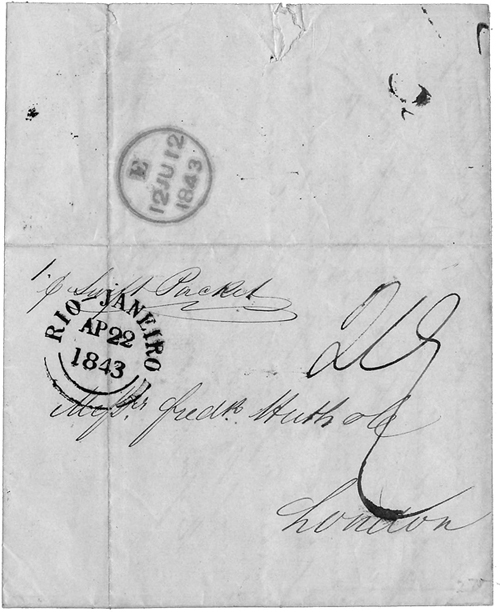 E
12 JU 12
1843
p Swift Packet
RIO JANEIRO
AP 22
1843
2/9
Messrs. Fredk. Huth & Co
London